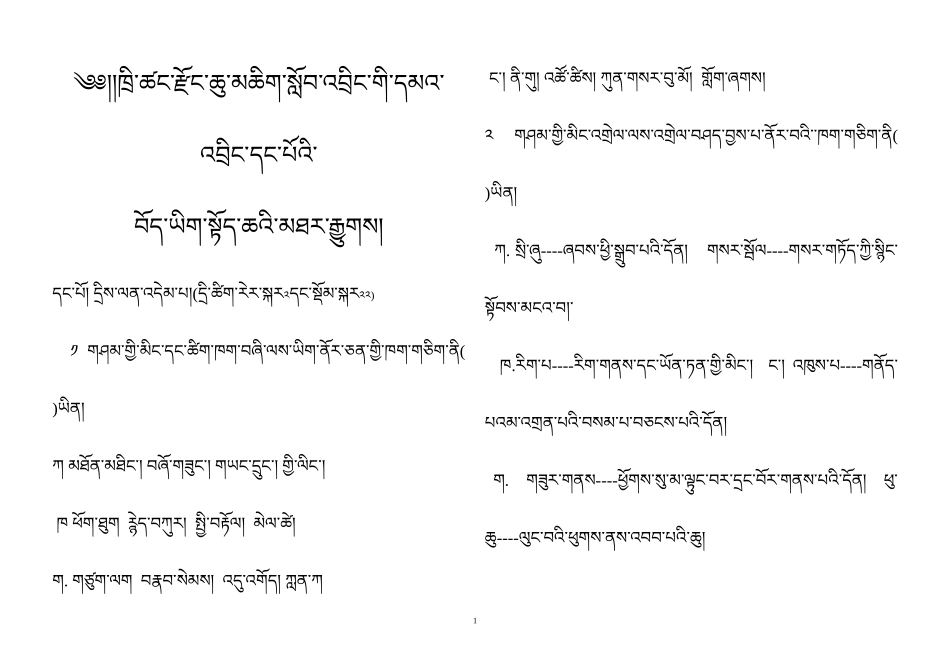 ༄༅།།ཁྲི་ཚང་རྫོང་ཆུ་མཆིག་སློབ་འབྲིང་གི་དམའ་
འབྲིང་དང་པོའི་
བོད་ཡིག་སྟོད་ཆའི་མཐར་རྒྱུགས།
དང་པོ། དྲིས་ལན་འདེམ་པ།(དྲི་ཚིག་རེར་སྐར༢དང་སྡོམ་སྐར༢༢)
༡ གཤམ་གྱི་མིང་དང་ཚིག་ཁག་བཞི་ལས་ཡིག་ནོར་ཅན་གྱི་ཁག་གཅིག་ནི(
)ཡིན།
ཀ། མཐོན་མཐིང་། བཞོ་གཟུང་། གཡང་དྲུང་། གྱི་ལིང་།
ཁ ཕོག་ཐུག རྙེད་བཀུར། སྤྱི་བརྟོལ། མེལ་ཚེ།
ག. གཙུག་ལག བརྣབ་སེམས། འདུ་འགོད། ཀླན་ཀ
ང་། ནི་གུ། འཚོ་ཚིས། ཀུན་གསར་བུ་མོ། གློག་ཞགས།
༢ གཤམ་གྱི་མིང་འགྲེལ་ལས་འགྲེལ་བཤད་བྱས་པ་ནོར་བའི་་ཁག་གཅིག་ནི(
)ཡིན།
ཀ. སྲི་ཞུ----ཞབས་ཕྱི་སྒྲུབ་པའི་དོན། གསར་སྦོལ----གསར་གཏོད་ཀྱི་སྙིང་
སྟོབས་མངའ་བ།་
ཁ.རིག་པ----རིག་གནས་དང་ཡོན་ཏན་གྱི་མིང་། ང་། འཁུས་པ----གནོད་
པའམ་འགྲན་པའི་བསམ་པ་བཅངས་པའི་དོན།
ག. གཟུར་གནས----ཕྱོགས་སུ་མ་ལྟུང་བར་དྲང་བོར་གནས་པའི་དོན། ཕུ་
ཆུ----ལུང་བའི་ཕུགས་ནས་འབབ་པའི་ཆུ།
1